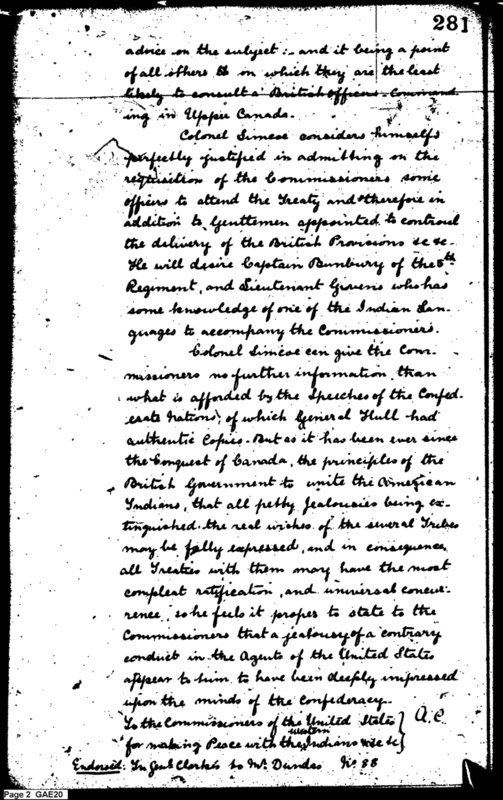 281
advice on the subject :- and it being a point
of all others on which they are the least
likely to consult a British Officers command
ing in Upper Canada.
Colonel Simcoe considers himself
perfectly justified in admitting on the
requisition of the Commissioners some
officers to attend the Treaty and therefore in
addition to Gentlemen appointed to controul
the delivery of the British Provisions &c &c.
He will desire Captain Bunbury of the 5th
Regiment, and Lieutenant Givens who has
some knowledge of one of the Indian Lan-
guages to accompany the Commissioners.
Colonel Simcoe can give the Com-
missioners no further information, than
what is afforded by the Speeches of the Confed-
erate Nations, of which General Hull had
authentic Copies. But as it has been ever since
the Conquest of Canada, the principles of the
British Government to unite the American
Indians, that all petty Jealousies being ex-
tinguished the real wishes of the several Tribes
may be fully expressed, and in consequence
all Treaties with them may have the most
compleat ratification, and universal concur-
rence, so he feels it proper to state to the
Commissioners that a jealousy of a contrary
conduct in the Agents of the United States
appear to him to have been deeply impressed
upon the minds of the Confederacy.
To the Commissioners of the United States
for making Peace with the western Indians &c &c } A.C.
Endorsed: In Genl Clarke's to Mr. Dundas No. 88
Page 2 GAE20